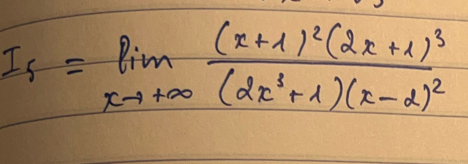 I₅ = lim x→+∞ (x+1)²(2x+1)³ / (2x³+1)(x-2)²